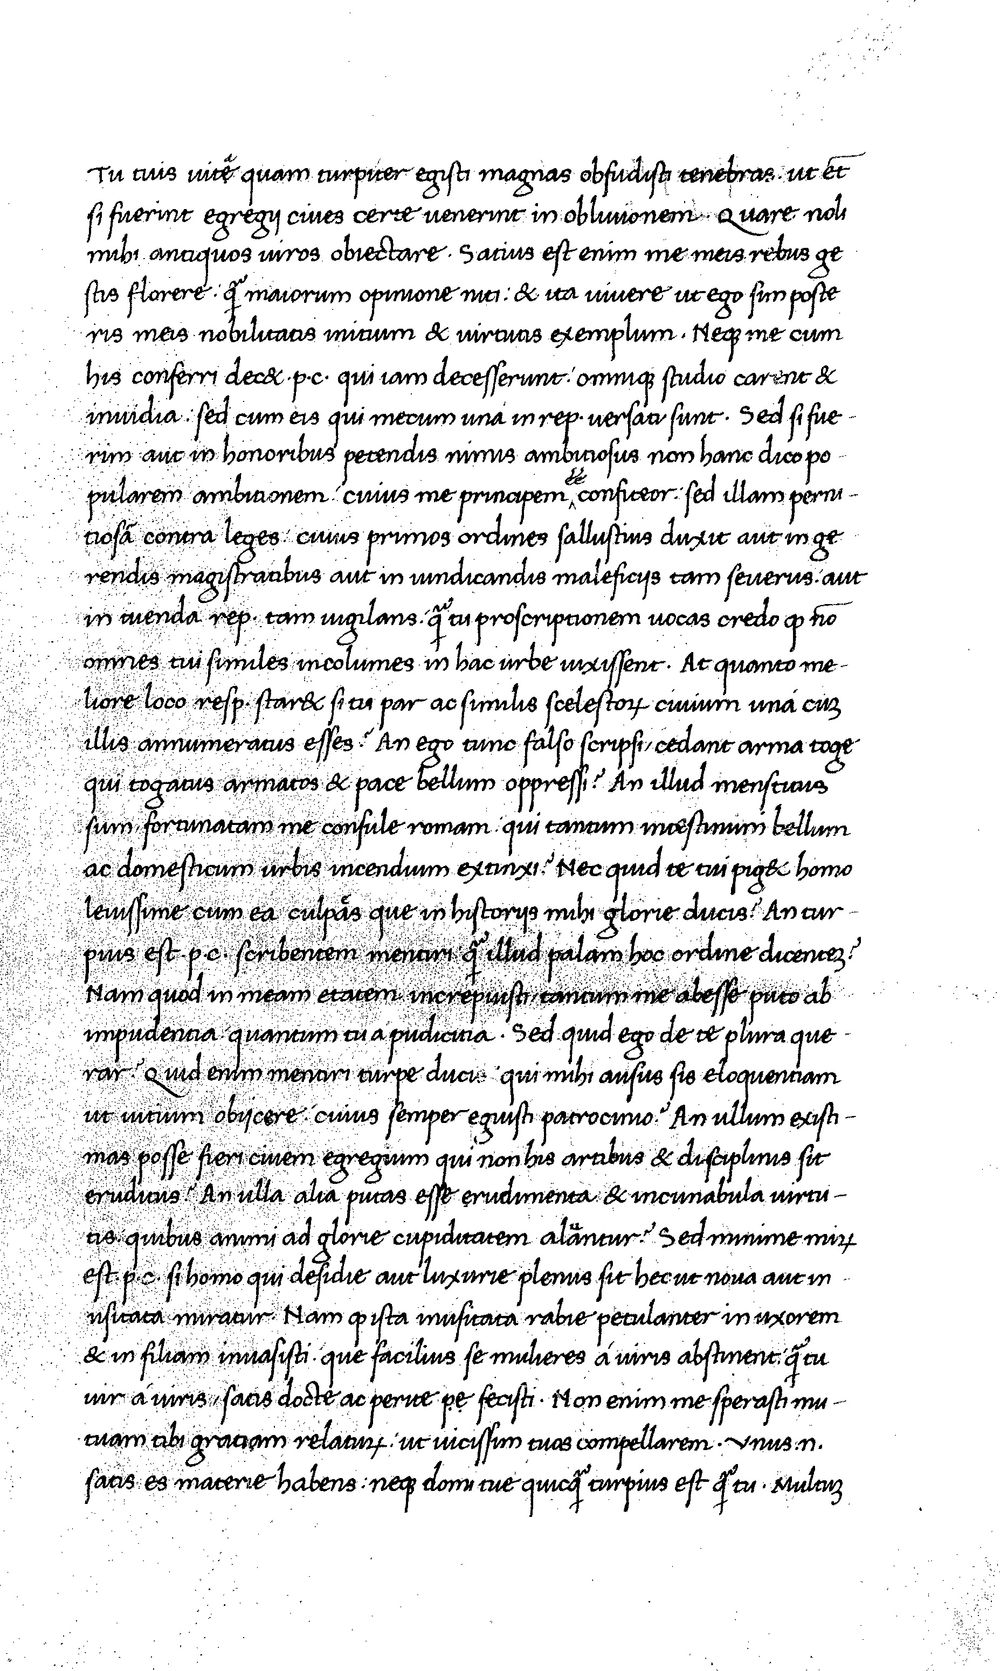 Tu tuis uitę̃ quam turpiter egisti magnas obfudisti tenebras. ut et̄
si fuerint egregij ciues certe uenerint in obliuionem. Quare noli
mihi antiquos uiros obiectare. Satius est enim me meis rebus ge
stis florere. q̃ maiorum opinione niti: & ita uiuere ut ego sim poste
ris meis nobilitatis initium & uirtutis exemplum. Neqꝫ me cum
his conferri dec& .p.c. qui iam decesserunt: omniqꝫ studio carent &
inuidia: sed cum eis qui mecum uná in rep. uersati sunt. Sed si fue-
rim aut in honoribus petendis nimis ambitiosus non hanc dico po-
pularem ambitionem: cuius me principem ^ee confiteor: sed illam perni-
tiosã contra leges: cuius primos ordines sallustius duxit aut in ge
rendis magistratibus aut in uindicandis maleficijs tam seuerus: aut
in tuenda rep. tam uigilans: q̃ tu proscriptionem uocas credo ꝙ nō
omnes tui similes incolumes in hac urbe uixissent. At quanto me-
liore loco resp. star& si tu par ac similis scelestoꝝ ciuium uná cuꝫ
illis annumeratus esses? An ego tunc falso scripsi/cedant arma togę
qui togatus armatos & pace bellum oppressi? An illud mentitus
sum fortunatam me consule romam: qui tantum intestinum bellum
ac domesticum urbis incendium extinxi? Nec quid te tui pig& homo
leuissime cum ea culpãs que in historijs mihi glorie ducis? An tur-
pius est .p.c. scribentem mentiri q̃ illud palam hoc ordine dicenteꝫ?
Nam quod in meam etatem increpuisti/tantum me abesse puto ab
impudentia quantum tu a pudicitia. Sed quid ego de te plura que-
rar? Quid enim mentiri turpe ducis: qui mihi ausus sis eloquentiam
ut uitium obijcere: cuius semper eguisti patrocinio? An ullum existi-
mas posse fieri ciuem egregium qui non his artibus & disciplinis sit
eruditus? An ulla alia putas esse erudimenta & incunabula uirtu-
tis: quibus animi ad glorie cupiditatem alantur? Sed minime miꝝ
est .p.c. si homo qui desidie aut luxurie plenus sit hec ut noua aut in
usitata miratur. Nam ꝙ ista inusitata rabie petulanter in uxorem
& in filiam inuasisti: que facilius se mulieres á uiris abstinent: q̃ tu
uir á uiris/satis docte ac perite pe fecisti. Non enim me sperasti mu-
tuam tibi gratiam relatuꝝ: ut uicissim tuas compellarem. Vnus .n.
satis es materie habens: neqꝫ domi tue quicq̃ turpius est q̃ tu. Multuꝫ